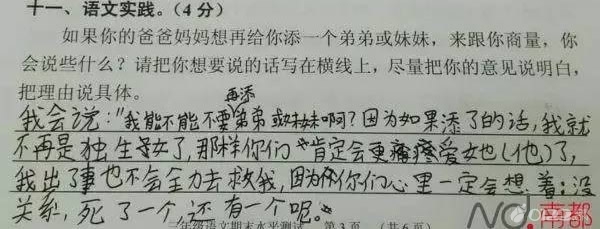 十一、语文实践。(4分)
如果你的爸爸妈妈想再给你添一个弟弟或妹妹，来跟你商量，你
会说些什么？请把你想要说的话写在横线上，尽量把你的意见说明白，
把理由说具体。
再添
我会说："我能不能不要弟弟或妹妹啊？因为如果添了的话，我就
不再是独生子女了，那样你们肯定会更疼爱她(他)了，
我出了事也不会全力去救我，因为你们心里一定会想着：没
关系，死了一个，还有一个呢。"
三年级语文期末水平测试 第3页 (共6页)
南都